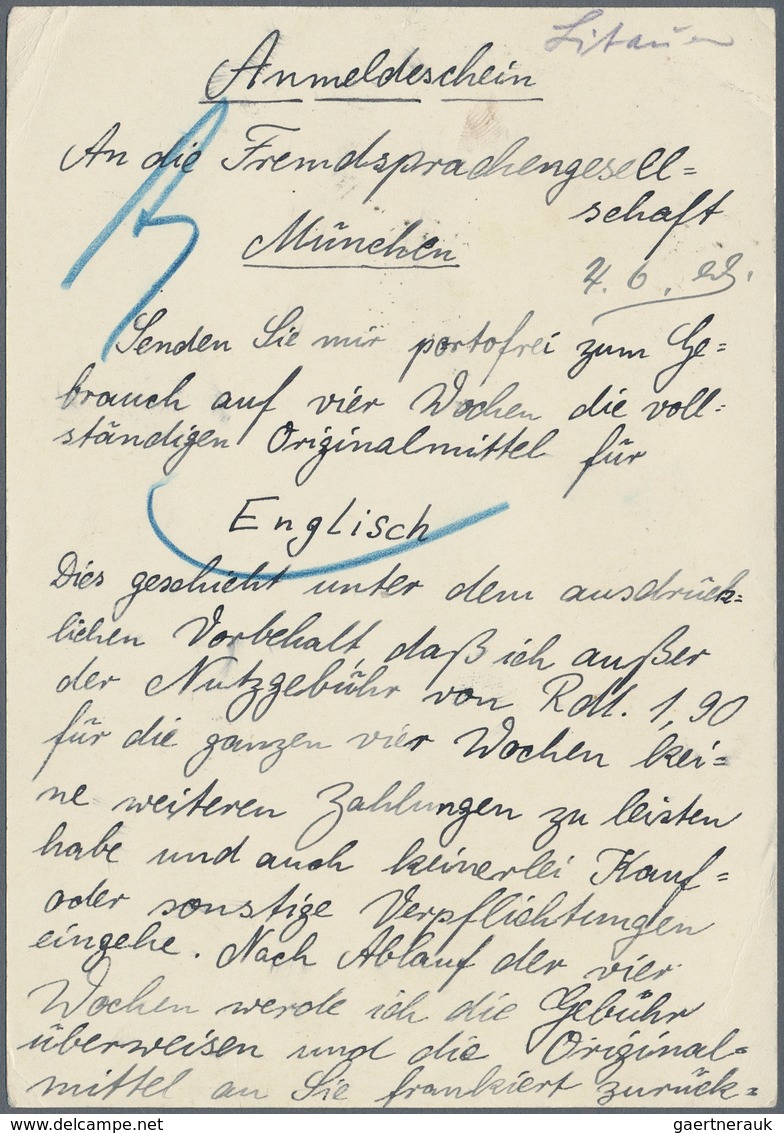 Litauen
Anmeldeschein
An die Fremdsprachengesell=
schaft
München
Senden Sie mir portofrei zum Ge=
brauch auf vier Wochen die voll=
ständigen Originalmittel für
Englisch
Dies geschieht unter dem ausdrück=
lichen Vorbehalt, daß ich außer
der Nutzgebühr von RM. 1,90
für die ganzen vier Wochen kei=
ne weiteren Zahlungen zu leisten
habe und auch keinerlei Kauf=
oder sonstige Verpflichtungen
eingehe. Nach Ablauf der vier
Wochen werde ich die Gebühr
überweisen und die Original=
mittel an Sie frankiert zurück=
www.delcampe.net
gaertnerauk